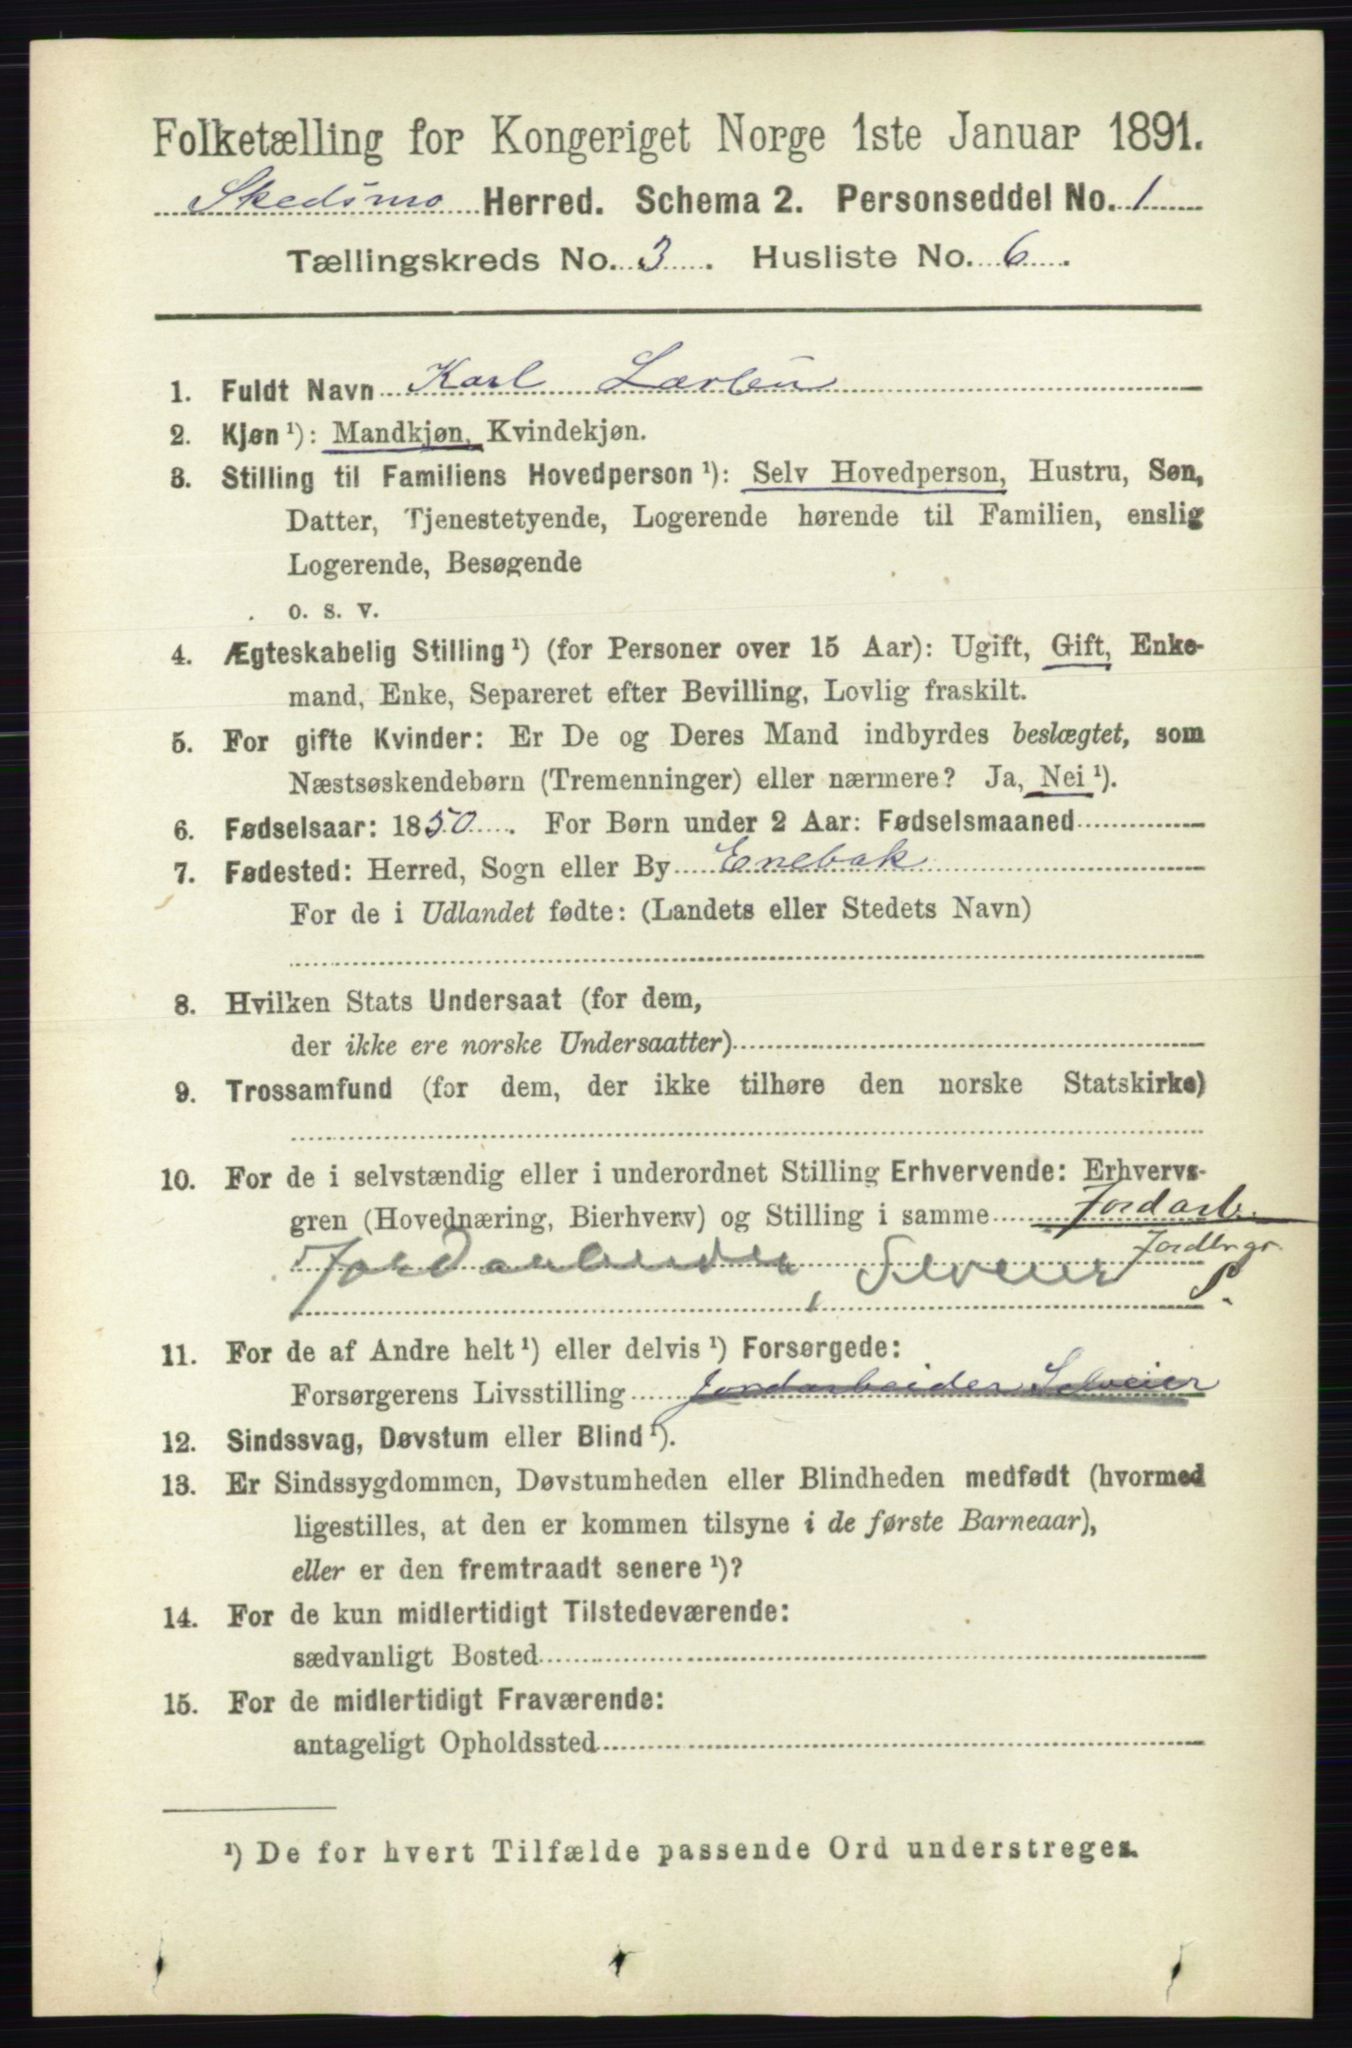 Folketælling for Kongeriget Norge 1ste Januar 1891.
Skedsmo Herred. Schema 2. Personseddel No. 1
Tællingskreds No. 3. Husliste No. 6.
1. Fuldt Navn Karl Larsen
2. Kjøn ¹): Mandkjøn, Kvindekjøn.
3. Stilling til Familiens Hovedperson ¹): Selv Hovedperson, Hustru, Søn,
Datter, Tjenestetyende, Logerende hørende til Familien, enslig
Logerende, Besøgende
o. s. v.
4. Ægteskabelig Stilling ¹) (for Personer over 15 Aar): Ugift, Gift, Enke-
mand, Enke, Separeret efter Bevilling, Lovlig fraskilt.
5. For gifte Kvinder: Er De og Deres Mand indbyrdes beslægtet, som
Næstsøskendebørn (Tremenninger) eller nærmere? Ja, Nei ¹).
6. Fødselsaar: 1850. For Børn under 2 Aar: Fødselsmaaned
7. Fødested: Herred, Sogn eller By Enebak
For de i Udlandet fødte: (Landets eller Stedets Navn)
8. Hvilken Stats Undersaat (for dem,
der ikke ere norske Undersaatter)
9. Trossamfund (for dem, der ikke tilhøre den norske Statskirke)
10. For de i selvstændig eller i underordnet Stilling Erhvervende: Erhvervs-
gren (Hovednæring, Bierhverv) og Stilling i samme Jordarb.
Jordarbeider, Selveier Jordbrgr.
S.
11. For de af Andre helt ¹) eller delvis ¹) Forsørgede:
Forsørgerens Livsstilling Jordarbeider Selveier
12. Sindssvag, Døvstum eller Blind ¹).
13. Er Sindssygdommen, Døvstumheden eller Blindheden medfødt (hvormed
ligestilles, at den er kommen tilsyne i de første Barneaar),
eller er den fremtraadt senere ¹)?
14. For de kun midlertidigt Tilstedeværende:
sædvanligt Bosted
15. For de midlertidigt Fraværende:
antageligt Opholdssted
¹) De for hvert Tilfælde passende Ord understreges.